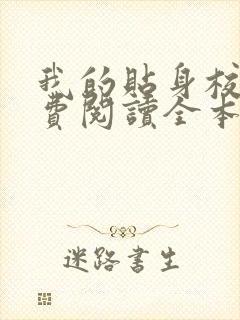 我的貼身校
費閱讀全本
迷路書生